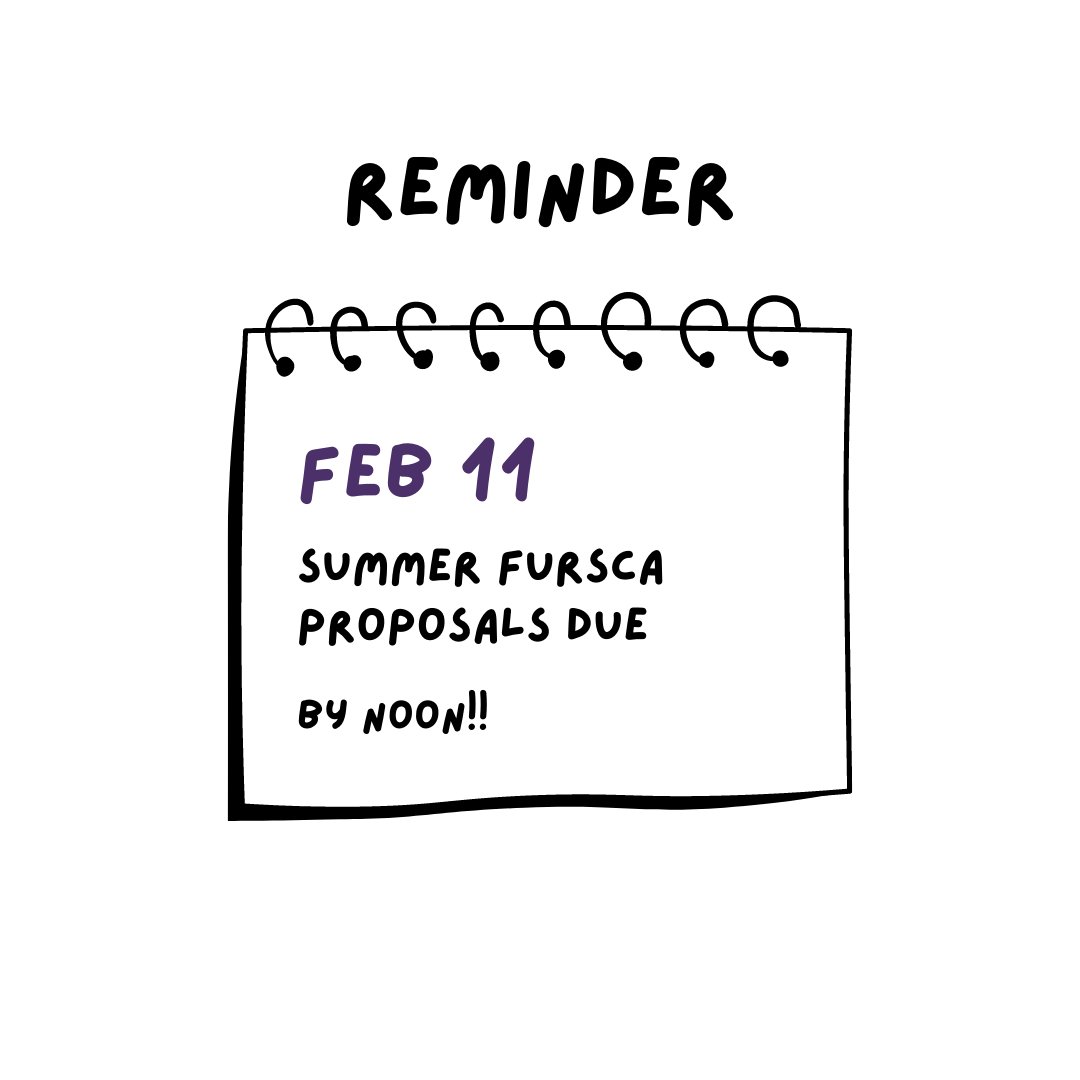 REMINDER
FEB 11
SUMMER FURSCA
PROPOSALS DUE
BY NOON!!